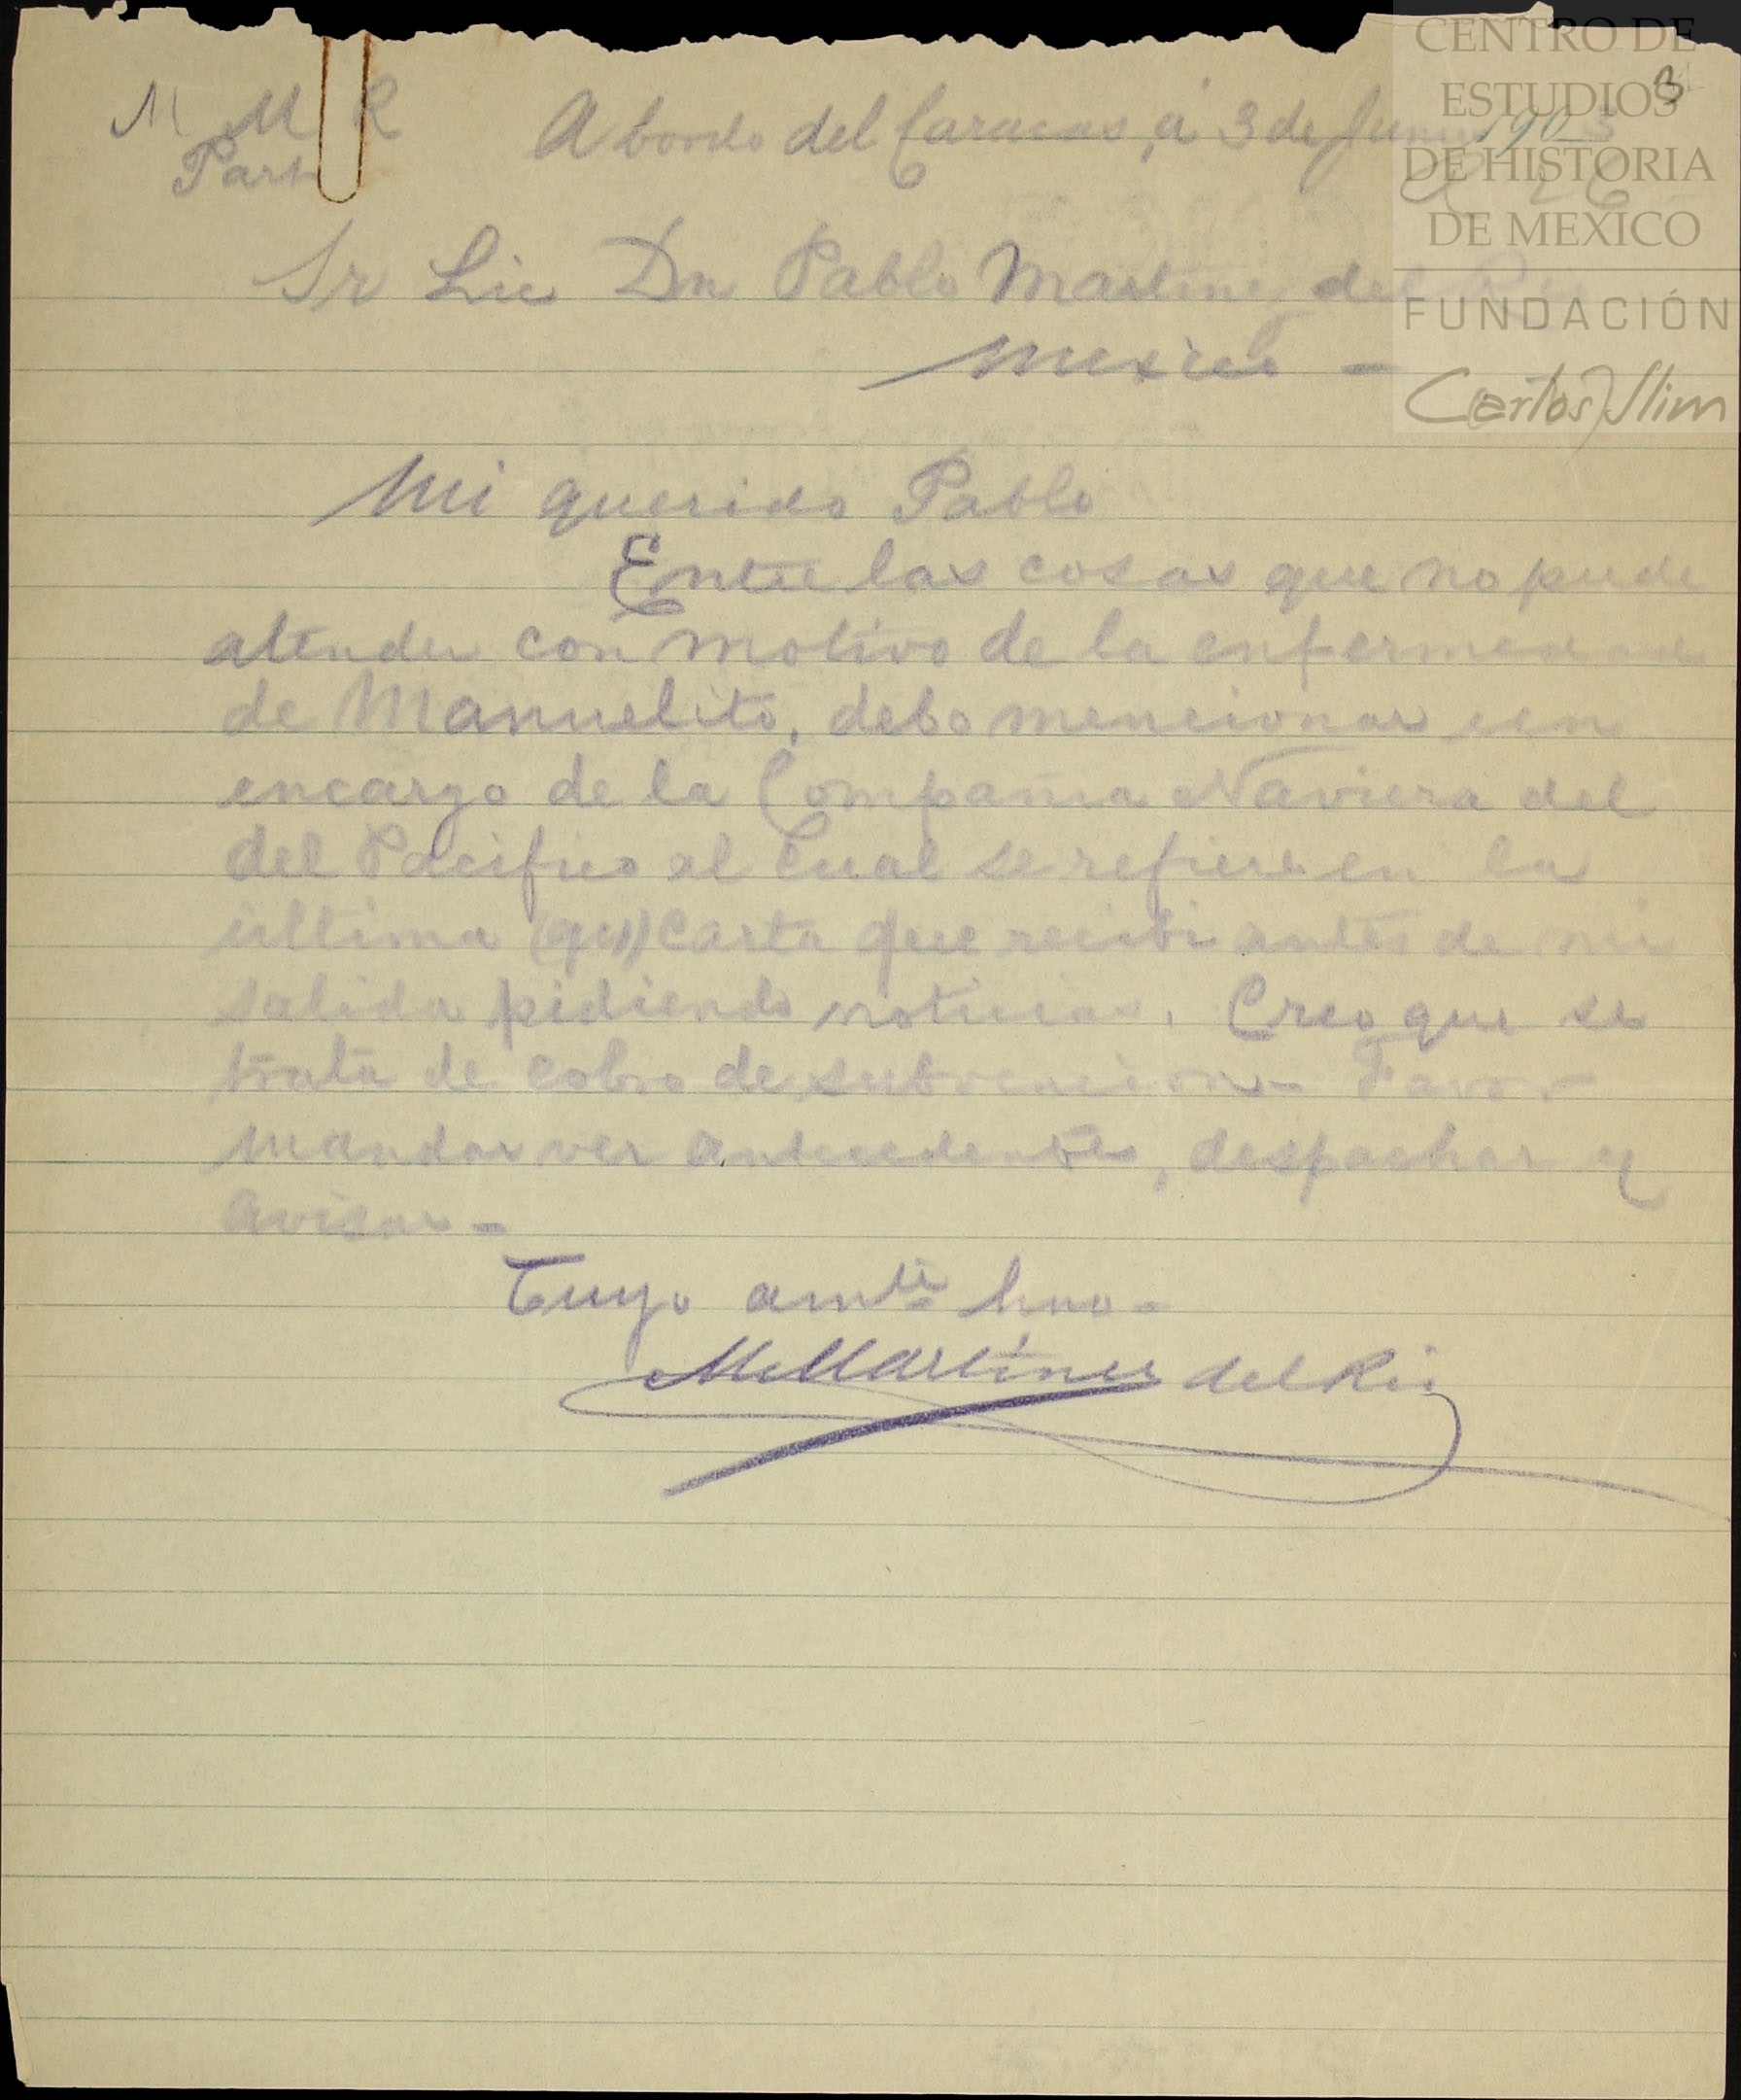 CENTRO DE
ESTUDIOS
DE HISTORIA
DE MEXICO
FUNDACIÓN
Carlos Slim
3
M M R
Part
A bordo del Caracas, á 3 de Junio 1903
Sr Lic Dn Pablo Martinez del Rio
Mexico -
Mi querido Pablo
Entre las cosas que no pude
atender con motivo de la enfermedad
de Manuelito, debo mencionar un
encargo de la Compañia Naviera del
del Pacifico al cual se refiere en la
ultima (qu) carta que recibi antes de mi
salida pidiendo noticias. Creo que se
trata de cobro de subvencion - Favor
mandar ver antecedentes, despachar y
avisar -
Tuyo amte hno -
M Martinez del Rio